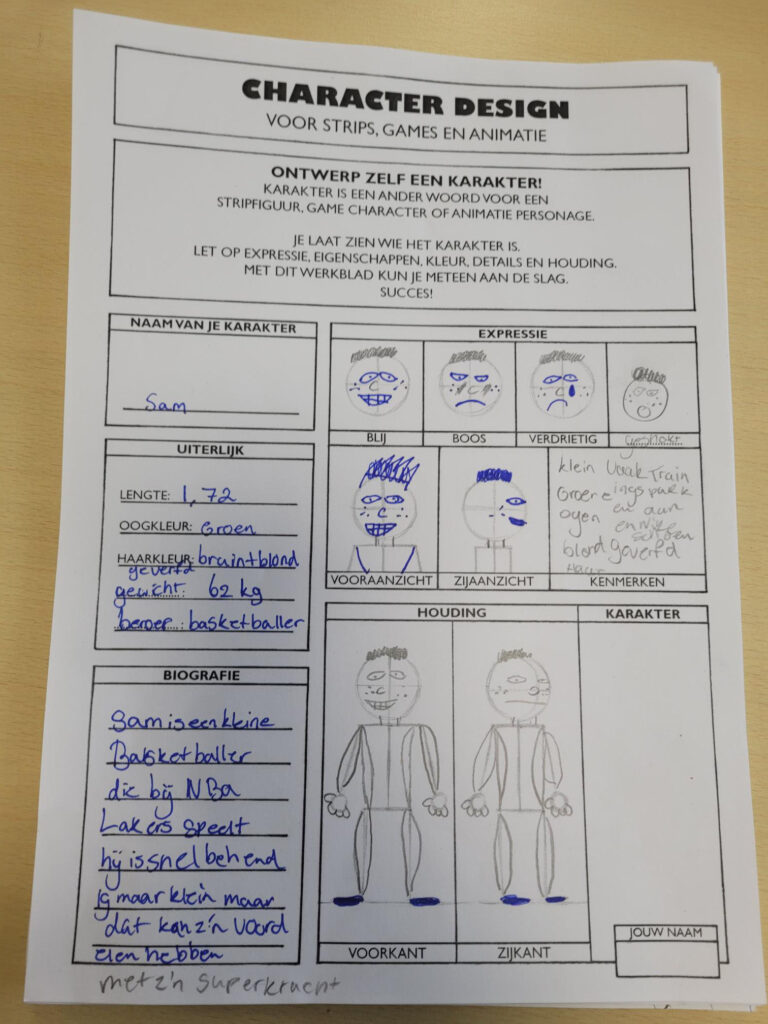 CHARACTER DESIGN
VOOR STRIPS, GAMES EN ANIMATIE
ONTWERP ZELF EEN KARAKTER!
KARAKTER IS EEN ANDER WOORD VOOR EEN
STRIPFIGUUR, GAME CHARACTER OF ANIMATIE PERSONAGE.
JE LAAT ZIEN WIE HET KARAKTER IS.
LET OP EXPRESSIE, EIGENSCHAPPEN, KLEUR, DETAILS EN HOUDING.
MET DIT WERKBLAD KUN JE METEEN AAN DE SLAG.
SUCCES!
NAAM VAN JE KARAKTER
Sam
UITERLIJK
LENGTE: 1,72
OOGKLEUR: Groen
HAARKLEUR: bruint blond
geverfd
gewicht: 62 kg
beroep: basketballer
BIOGRAFIE
Sam is een kleine
Basketballer
die bij NBa
Lakers speelt
hij is snel behend
ig maar klein maar
dat kan z'n voord
elen hebben
met z'n superkracht
EXPRESSIE
BLIJ
BOOS
VERDRIETIG
klein
Vaak Train
Groene
ingspak
ogen
en aan
en
blond geverfd
VOORAANZICHT
ZIJAANZICHT
KENMERKEN
HOUDING
KARAKTER
VOORKANT
ZIJKANT
JOUW NAAM